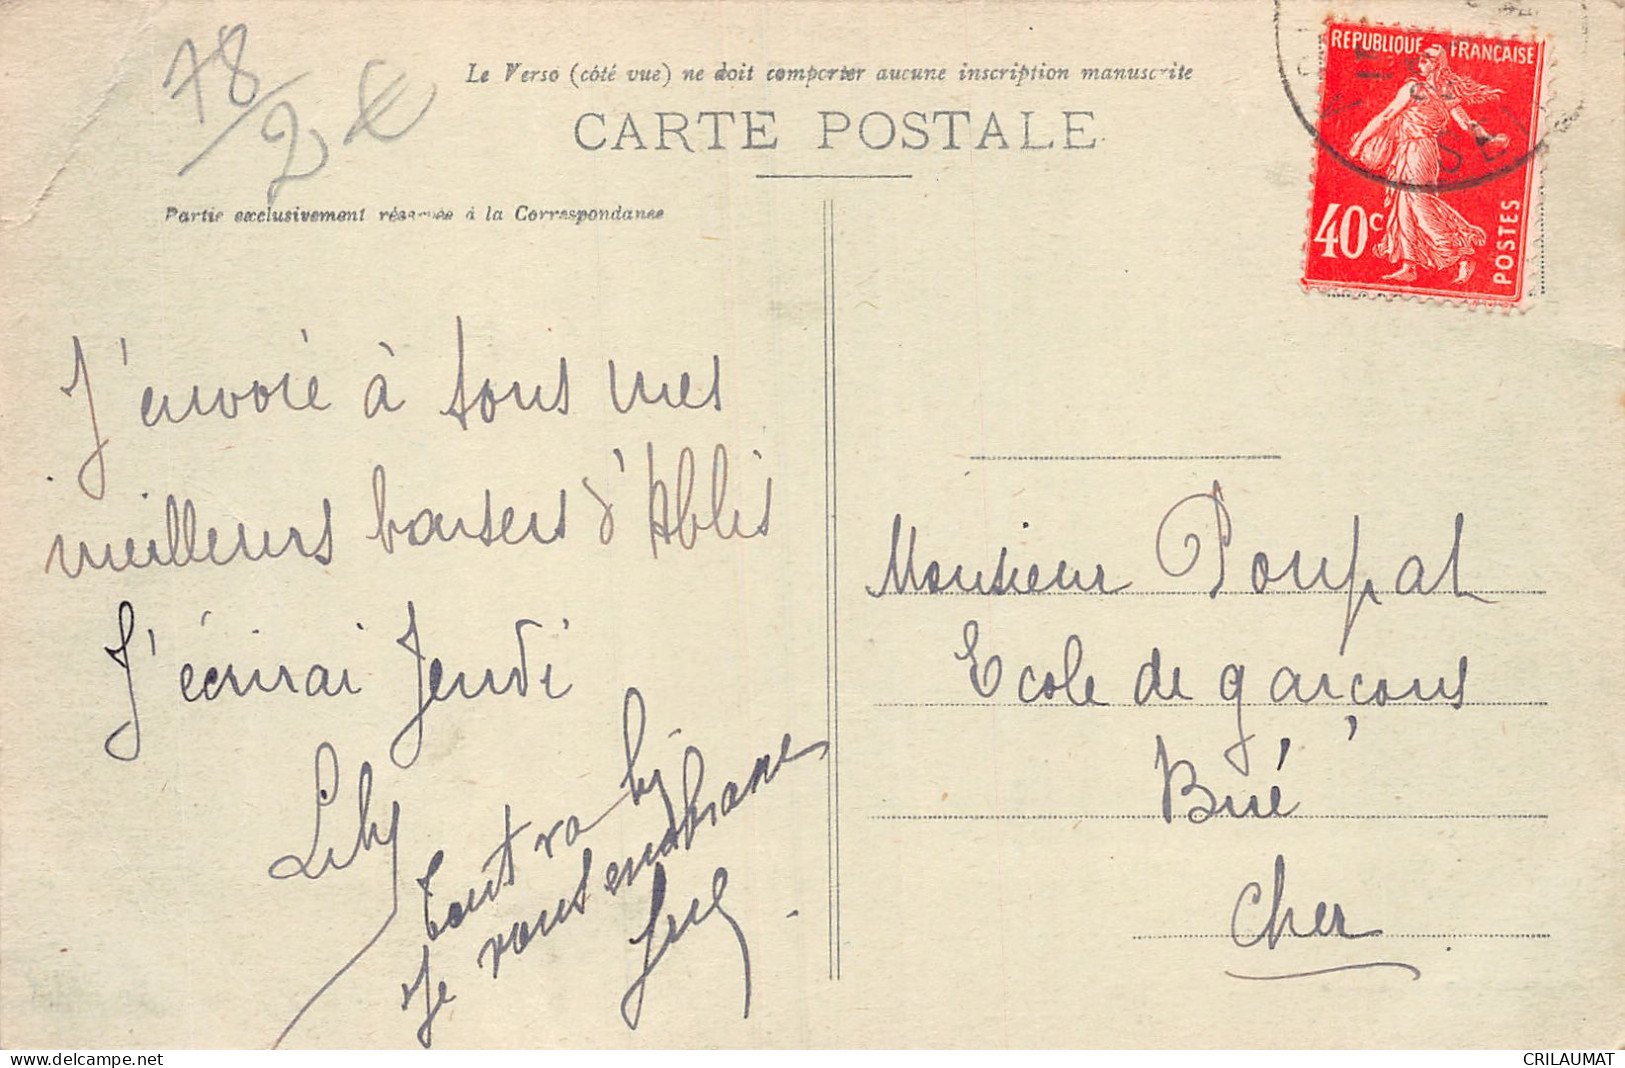 78/2€
Le Verso (côté vue) ne doit comporter aucune inscription manuscrite
CARTE POSTALE
REPUBLIQUE FRANÇAISE
40c
POSTES
Partie exclusivement réservée à la Correspondance
J'envoie à tous mes
meilleurs baisers d'Ablis
J'écrirai Jeudi
Lily
tout va bi
Je vous embrasse
Monsieur Poupat
Ecole de garçons
Bué
Cher
www.delcampe.net
CRILAUMAT